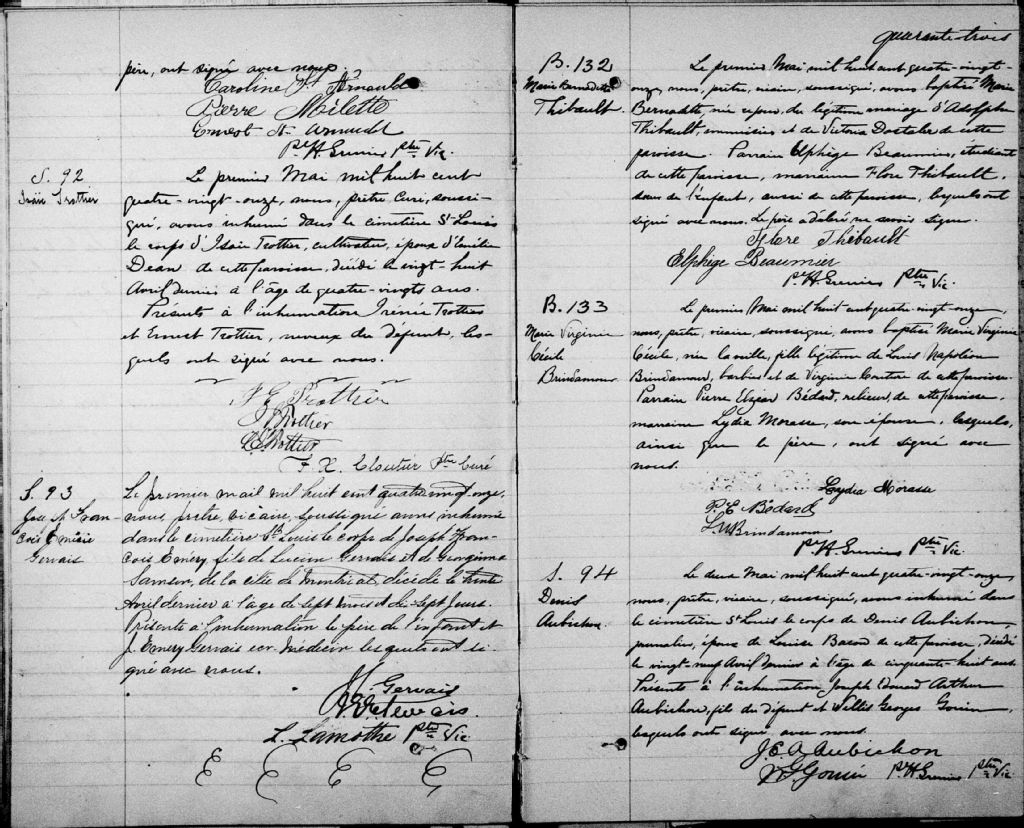 père, ont signé avec nous.
Caroline St Arnauld
Pierre Milette
Ernest St Arnauld
Ptre Vic.
S. 92
Trottier
Le premier Mai mil huit cent
quatre-vingt-onze, nous, prêtre Curé, soussi-
gné, avons inhumé dans le cimetière St Louis
le corps d'Isaïe Trottier, cultivateur, époux d'Emilie
Dean de cette paroisse, décédé le vingt-huit
Avril dernier à l'âge de quatre-vingts ans.
Présents à l'inhumation Irénée Trottier
et Ernest Trottier, neveux du défunt, les-
quels ont signé avec nous.
Trottier
Trottier
Trottier
F. X. Cloutier Ptre Curé
S. 93
Joseph Fran-
cois Emérie
Gervais
Le premier mail mil huit cent quatre vingt onze,
nous, prêtre, vicaire, soussigné avons inhumé
dans le cimetière St Louis le corps de Joseph Fran-
cois Eméry fils de Lucien Gervais et de Georgiana
Samson, de la cité de Montréal, décédé le trente
Avril dernier à l'age de sept mois et de sept jours.
Présents à l'inhumation le père de l'enfant et
J. Eméry Gervais ecr. Médecin lesquels ont si-
gné avec nous.
Gervais
Gervais.
L. Lamothe Ptre Vic
quarante-trois
B. 132
Marie Bernadette
Thibault.
Le premier Mai mil huit cent quatre-vingt-
onze, nous, prêtre, vicaire, soussigné, avons baptisé Marie
Bernadette, née ce jour, du légitime mariage d'Adolphe
Thibault, menuisier et de Victoria Dostaler de cette
paroisse. Parrain Elphège Beaumier, étudiant
de cette paroisse, marraine Flore Thibault,
soeur de l'enfant, aussi de cette paroisse, lesquels ont
signé avec nous. Le père a déclaré ne savoir signer.
Flore Thibault
Elphège Beaumier
Ptre Vic.
B. 133
Marie Virginie
Cécile
Brindamour.
Le premier Mai mil huit cent quatre-vingt-onze,
nous, prêtre, vicaire, soussigné, avons baptisé Marie Virginie
Cécile, née la veille, fille légitime de Louis Napoléon
Brindamour, barbier et de Virginie Couture de cette paroisse.
Parrain Pierre Elzéar Bédard, relieur, de cette paroisse,
marraine Lydia Morasse, son épouse, lesquels,
ainsi que le père, ont signé avec
nous.
Lydia Morasse
P. E. Bédard
L. N. Brindamour
Ptre Vic
S. 94
Denis
Aubichon.
Le deux Mai mil huit cent quatre-vingt-onze,
nous, prêtre, vicaire, soussigné, avons inhumé dans
le cimetière St Louis le corps de Denis Aubichon,
journalier, époux de Louise de cette paroisse, décédé
le vingt-neuf Avril dernier à l'âge de cinquante-huit ans.
Présents à l'inhumation Joseph Edouard Arthur
Aubichon, fils du défunt et Willis Georges Gouin
lesquels ont signé avec nous.
J. E. A. Aubichon
W. G. Gouin Ptre Vic